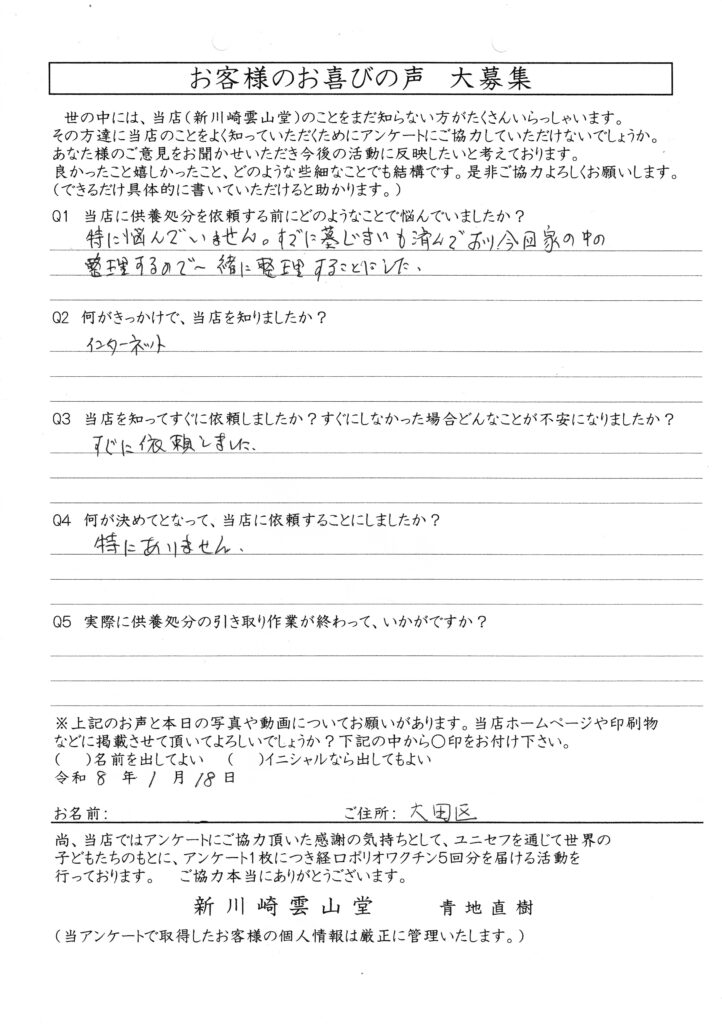 お客様のお喜びの声　大募集
世の中には、当店（新川崎雲山堂）のことをまだ知らない方がたくさんいらっしゃいます。
その方達に当店のことをよく知っていただくためにアンケートにご協力していただけないでしょうか。
あなた様のご意見をお聞かせいただき今後の活動に反映したいと考えております。
良かったこと嬉しかったこと、どのような些細なことでも結構です。是非ご協力よろしくお願いします。
（できるだけ具体的に書いていただけると助かります。）
Q1　当店に供養処分を依頼する前にどのようなことで悩んでいましたか？
特に悩んでいません。すでに墓じまいも済んでおり今回家の中の
整理するので一緒に整理することにした、
Q2　何がきっかけで、当店を知りましたか？
インターネット
Q3　当店を知ってすぐに依頼しましたか？すぐにしなかった場合どんなことが不安になりましたか？
すぐに依頼しました、
Q4　何が決めてとなって、当店に依頼することにしましたか？
特にありません、
Q5　実際に供養処分の引き取り作業が終わって、いかがですか？
※上記のお声と本日の写真や動画についてお願いがあります。当店ホームページや印刷物
などに掲載させて頂いてよろしいでしょうか？下記の中から〇印をお付け下さい。
（　）名前を出してよい　（　）イニシャルなら出してもよい
令和 8 年 1 月 18 日
お名前：　ご住所： 大田区
尚、当店ではアンケートにご協力頂いた感謝の気持ちとして、ユニセフを通じて世界の
子どもたちのもとに、アンケート1枚につき経口ポリオワクチン5回分を届ける活動を
行っております。　ご協力本当にありがとうございます。
新川崎雲山堂　青地直樹
（当アンケートで取得したお客様の個人情報は厳正に管理いたします。）